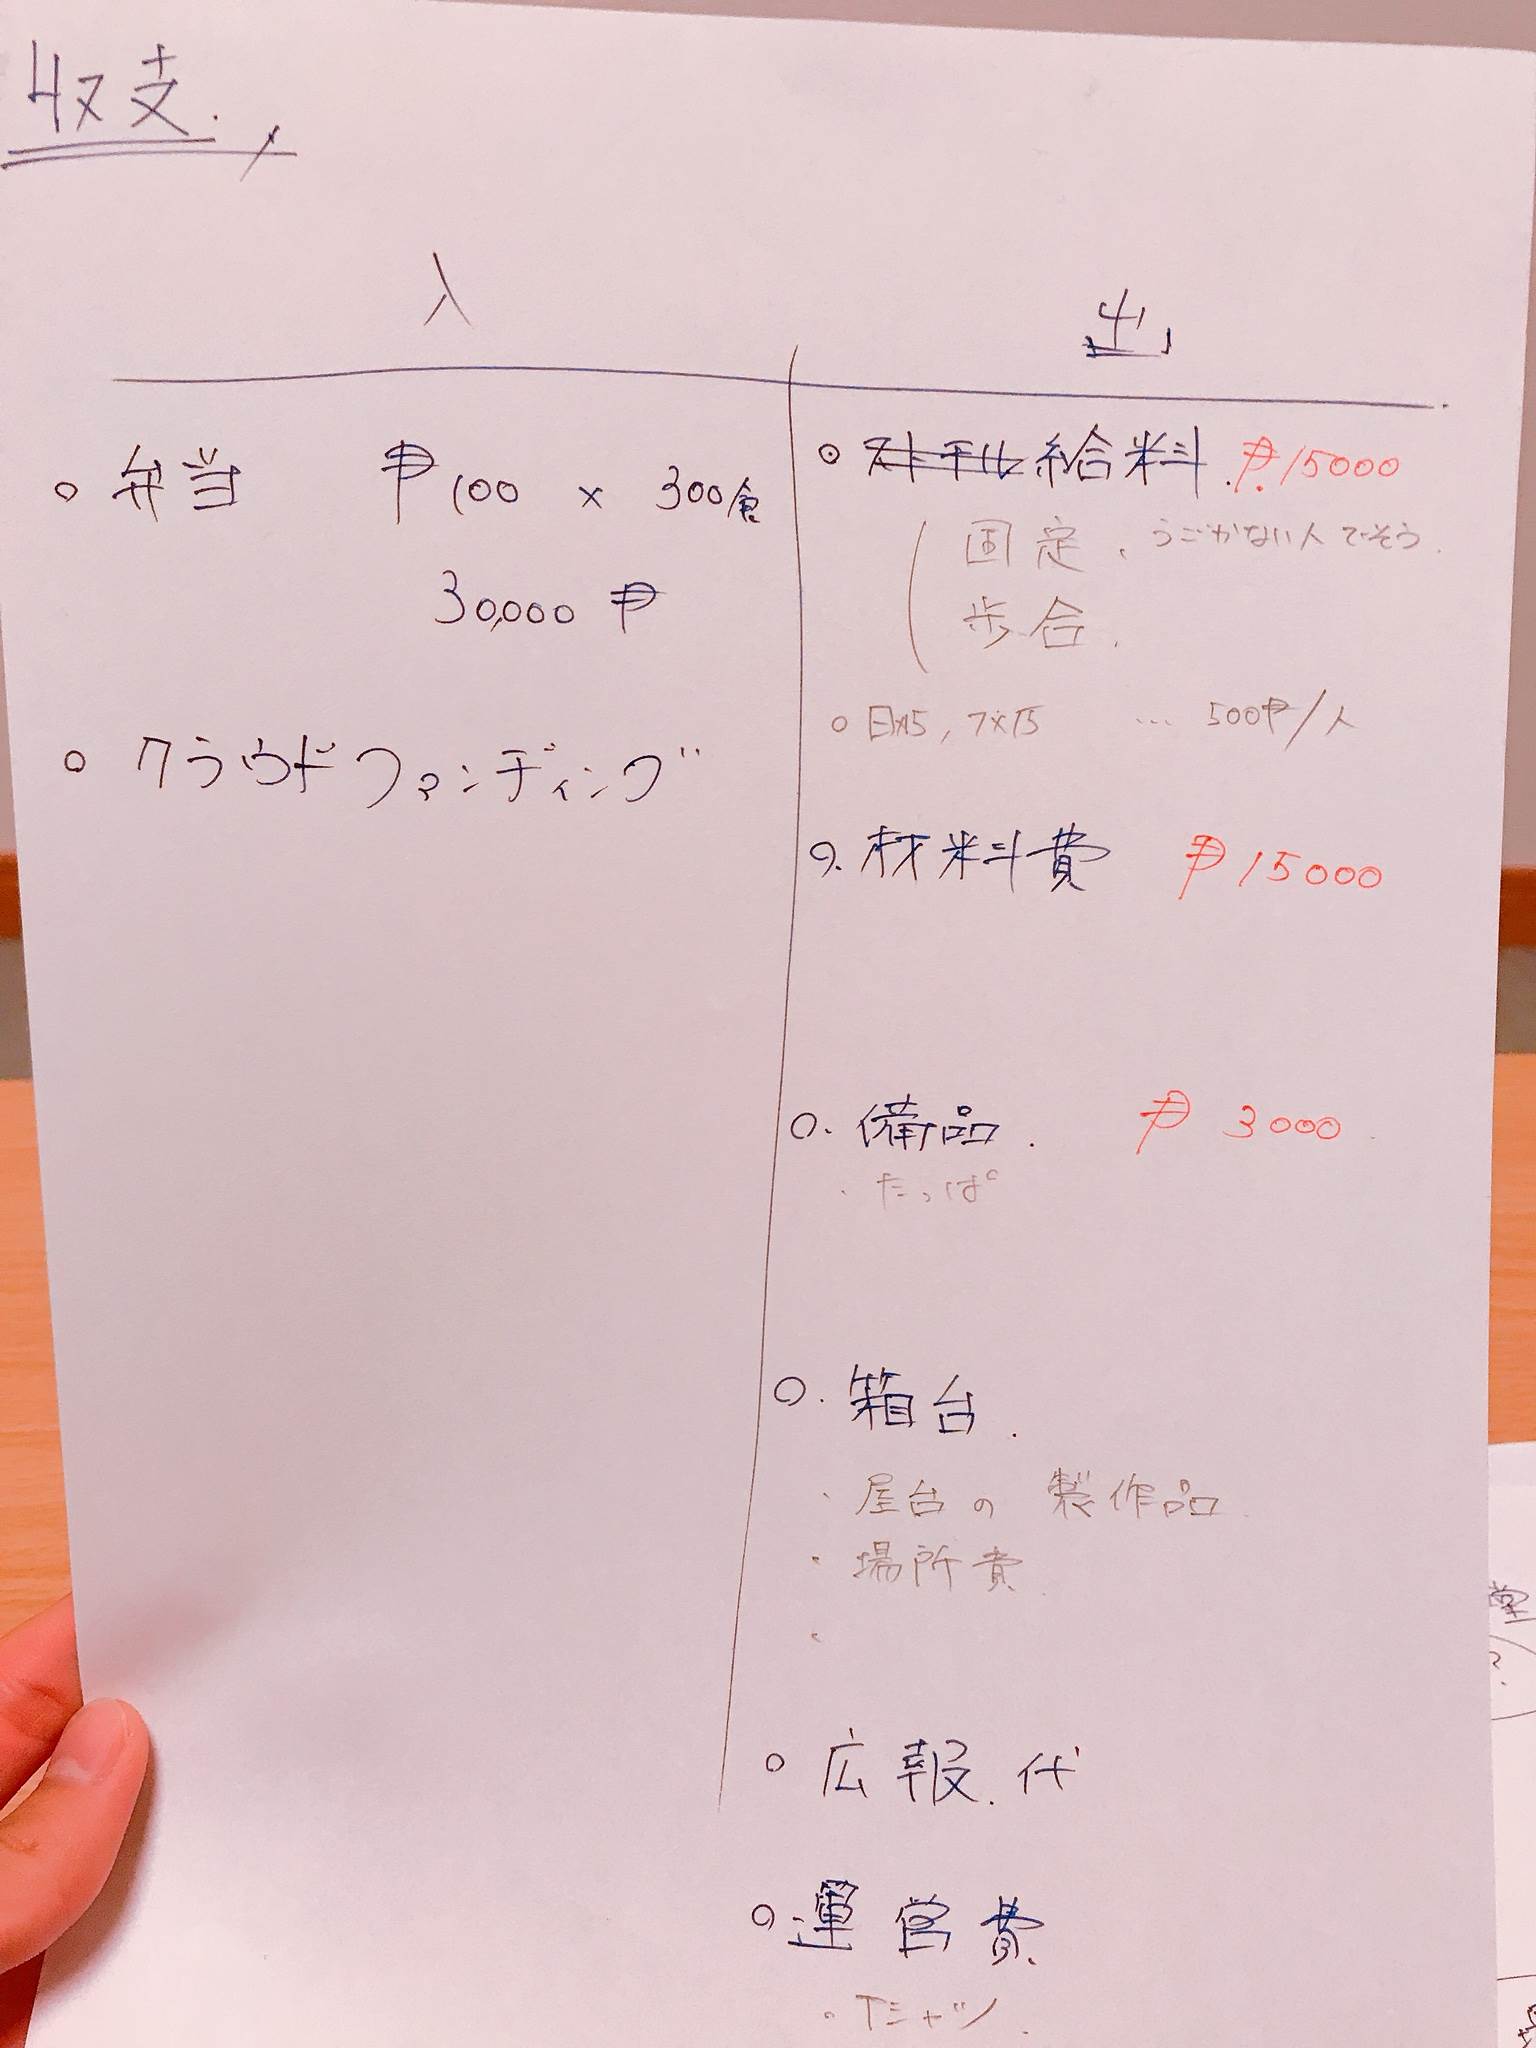 収支.
入
出
○ 弁当 ₱100 × 300食
30,000 ₱
○ クラウドファンディング
○ 給料. ₱15000
固定、うごかない人でそう.
歩合.
○ 日×5, ... 500₱/人
○. 材料費 ₱15000
○. 備品. ₱3000
・たっぱ
○. 箱台.
・屋台の製作品
・場所費
・
○ 広報.代
○ 運営費
・Tシャツ.
堂
?.